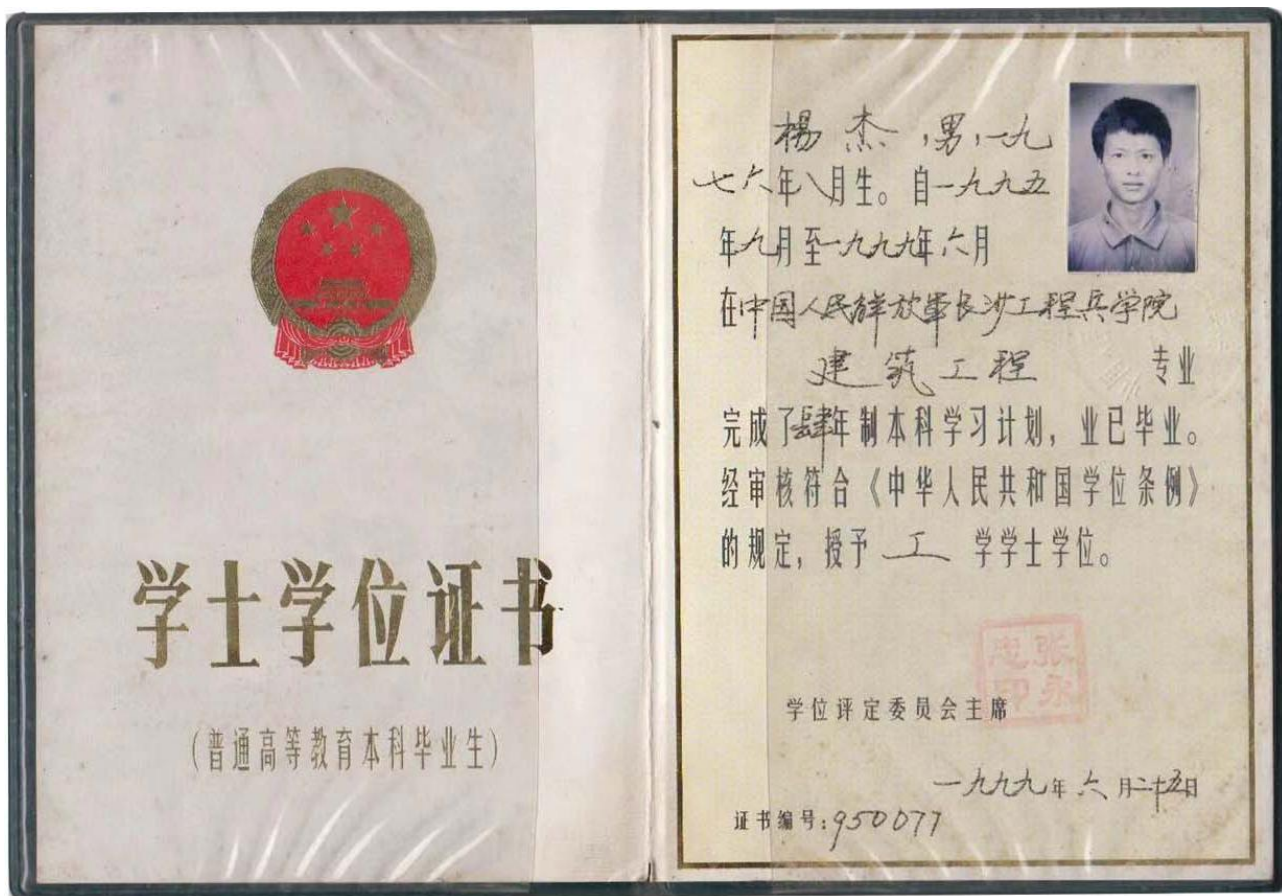 学士学位证书
(普通高等教育本科毕业生)
楊杰,男,一九
七六年八月生。自一九九五
年九月至一九九九年六月
在中国人民解放军长沙工程兵学院
建筑工程 专业
完成了肆年制本科学习计划，业已毕业。
经审核符合《中华人民共和国学位条例》
的规定，授予 工 学学士学位。
张永忠印
学位评定委员会主席
一九九九年六月二十五日
证书编号:950077